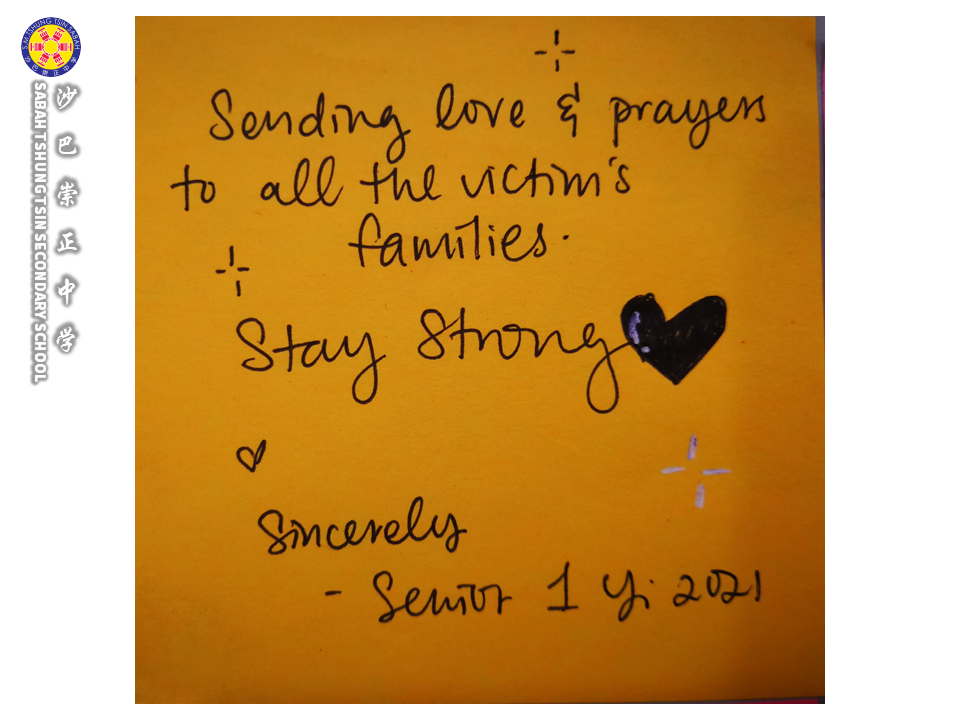 S.M. TSHUNG TSIN SABAH
沙巴崇正中学
沙巴崇正中学
SABAH TSHUNG TSIN SECONDARY SCHOOL
Sending love & prayers
to all the victim's
families.
Stay Strong
Sincerely
- Senior 1 Yi 2021